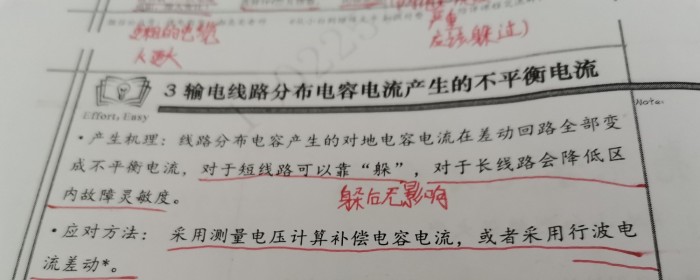 应该躲过）
人为大
3 输电线路分布电容电流产生的不平衡电流
Effort, Easy
Note:
·产生机理：线路分布电容产生的对地电容电流在差动回路全部变
成不平衡电流，对于短线路可以靠“躲”，对于长线路会降低区
内故障灵敏度。
躲后无影响
·应对方法：采用测量电压计算补偿电容电流，或者采用行波电
流差动*。